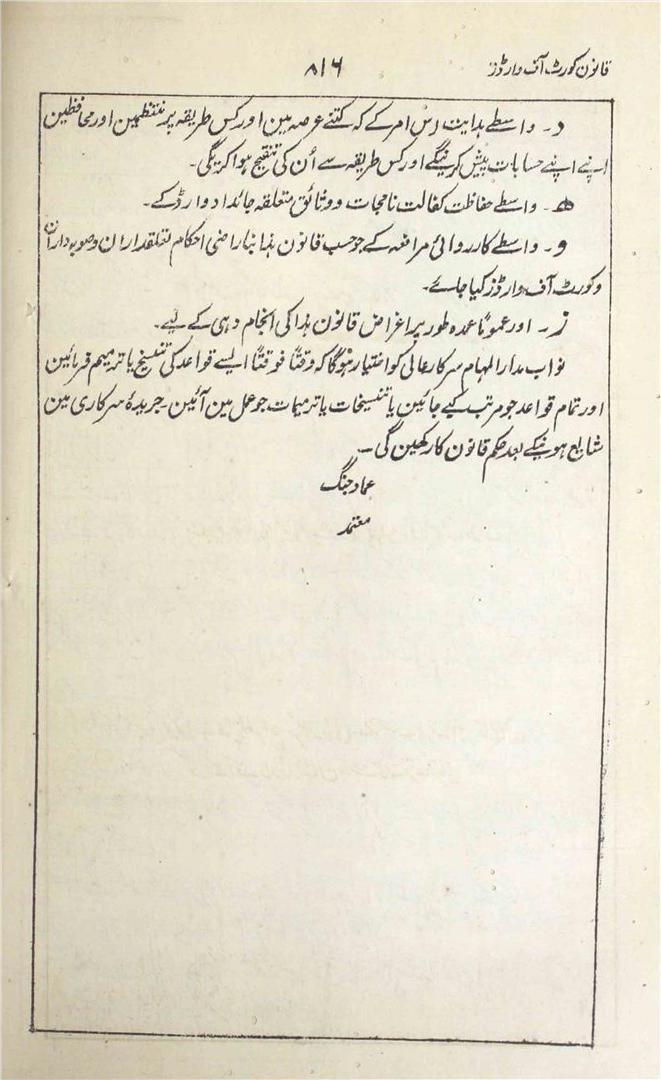 قانون کورٹ آف وارڈز
۸۱۶
د۔ واسطے ہدایت اس امر کے کہ کتنے عرصہ مین اور کس طریقہ پر منتظمین اور محافظین
اپنے اپنے حسابات پیش کرینگے اور کس طریقہ سے اُن کی تنقیح ہوا کریگی۔
ھ۔ واسطے حفاظت کفالت نامجات و وثائق متعلقہ جائداد وارڈ کے۔
و۔ واسطے کارروائی مرافعہ کے جو حسب قانون ہذا بناراضی احکام تعلقداران و صوبہ داران
و کورٹ آف وارڈز کیا جائے۔
ز۔ اور عموماً عمدہ طور پر اغراض قانون ہذا کی انجام دہی کے لیے۔
نواب مدار المہام سرکار عالی کو اختیار ہوگا کہ وقتاً فوقتاً ایسے قواعد کی تنسیخ یا ترمیم فرمائین
اور تمام قواعد جو مرتب کیے جائین یا تنسیخات یا ترمیمات جو عمل مین آئین۔ جریدۂ سرکاری مین
شایع ہونیکے بعد حکم قانون کا رکھین گی۔
عماد جنگ
معتمد